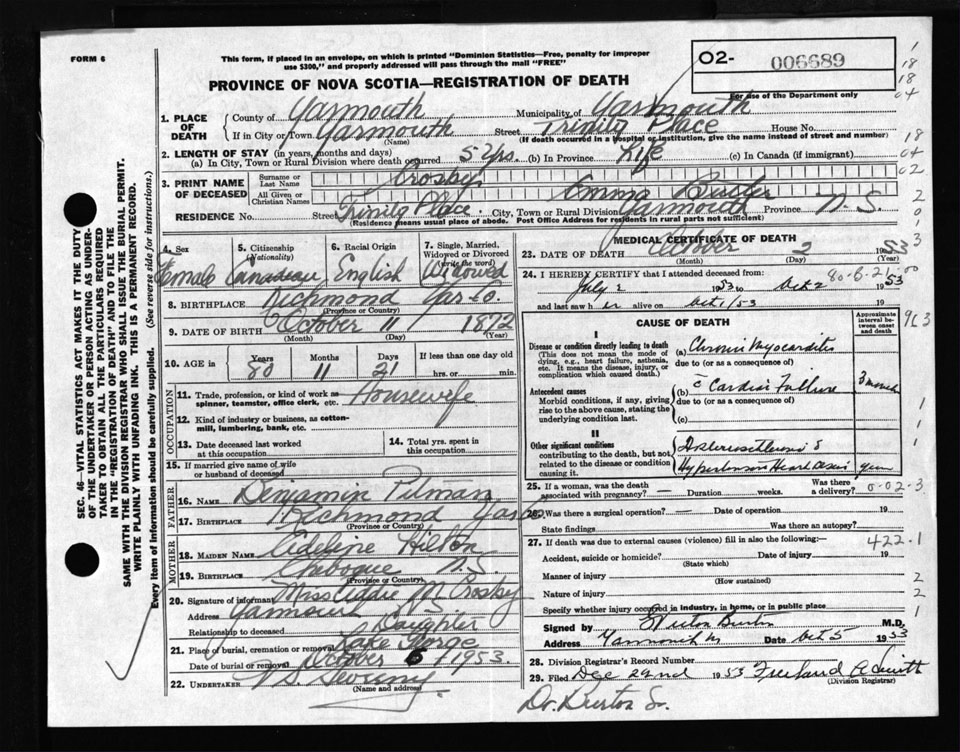 FORM 6
This form, if placed in an envelope, on which is printed "Dominion Statistics—Free, penalty for improper
use $300," and properly addressed will pass through the mail "FREE"
O2- 006689
For use of the Department only
PROVINCE OF NOVA SCOTIA—REGISTRATION OF DEATH
1. PLACE OF DEATH
County of Yarmouth Municipality of Yarmouth
If in City or Town Yarmouth Street Trinity Place House No.
(Name) (If death occurred in a hospital or institution, give the name instead of street and number)
2. LENGTH OF STAY (in years, months and days)
(a) In City, Town or Rural Division where death occurred 5 yrs. (b) In Province Life (c) In Canada (if immigrant)
3. PRINT NAME OF DECEASED
Surname or Last Name Crosby
All Given or Christian Names Emma Butler
RESIDENCE No. Street Trinity Place. City, Town or Rural Division Yarmouth Province N.S.
(Residence means usual place of abode. Post Office Address for residents in rural parts not sufficient)
4. Sex Female
5. Citizenship (Nationality) Canadian
6. Racial Origin English
7. Single, Married, Widowed or Divorced (write the word) Widowed
8. BIRTHPLACE Richmond Yar. Co.
(Province or Country)
9. DATE OF BIRTH October 11 1872
(Month) (Day) (Year)
10. AGE in Years 80 Months 11 Days 21 If less than one day old hrs. or min.
OCCUPATION
11. Trade, profession, or kind of work as spinner, teamster, office clerk, etc. Housewife
12. Kind of industry or business, as cotton-mill, lumbering, bank, etc.
13. Date deceased last worked at this occupation
14. Total yrs. spent in this occupation
15. If married give name of wife or husband of deceased
FATHER
16. NAME Benjamin Pitman
17. BIRTHPLACE Richmond Yar Co
(Province or Country)
MOTHER
18. MAIDEN NAME Adeline Hilton
19. BIRTHPLACE Chebogue N.S.
(Province or Country)
20. Signature of informant Miss Addie M Crosby
Address Yarmouth N.S.
Relationship to deceased Daughter
21. Place of burial, cremation or removal Lake George
Date of burial or removal October 5 1953.
22. UNDERTAKER V.S. Sweeny
(Name and address)
MEDICAL CERTIFICATE OF DEATH
23. DATE OF DEATH October 2 1953
(Month) (Day)
24. I HEREBY CERTIFY that I attended deceased from: 80-6-21
July 2 1953 to Oct 2 1953
and last saw her alive on Oct 1/53 19
CAUSE OF DEATH
Approximate interval between onset and death
I
Disease or condition directly leading to death
(This does not mean the mode of dying, e.g., heart failure, asthenia, etc. It means the disease, injury, or complication which caused death.)
(a) Chronic Myocarditis
due to (or as a consequence of)
Antecedent causes
Morbid conditions, if any, giving rise to the above cause, stating the underlying condition last.
(b) c Cardiac Failure 3 month
due to (or as a consequence of)
(c)
II
Other significant conditions
contributing to the death, but not related to the disease or condition causing it.
Arteriosclerosis &
Hypertension Heart Disease years
25. If a woman, was the death associated with pregnancy? — Duration weeks. Was there a delivery? 0-02-3
26. Was there a surgical operation? — Date of operation 19
State findings Was there an autopsy?
27. If death was due to external causes (violence) fill in also the following: 422.1
Accident, suicide or homicide? Date of injury 19
(State which)
Manner of injury
(How sustained)
Nature of injury
Specify whether injury occurred in industry, in home, or in public place
Signed by Burton M.D.
Address Yarmouth NS Date Oct 5 1953
28. Division Registrar's Record Number
29. Filed Dec 22nd 1953 Freeland A Smith
(Division Registrar)
Dr. Burton Sr.
SEC. 46—VITAL STATISTICS ACT MAKES IT THE DUTY
OF THE UNDERTAKER OR PERSON ACTING AS UNDER-
TAKER TO OBTAIN ALL THE PARTICULARS REQUIRED
IN THE "REGISTRATION OF DEATH" AND TO FILE THE
SAME WITH THE DIVISION REGISTRAR WHO SHALL ISSUE THE BURIAL PERMIT.
WRITE PLAINLY WITH UNFADING INK. THIS IS A PERMANENT RECORD.
Every item of information should be carefully supplied. (See reverse side for instructions.)
1
18
18
04
18
04
02
2
0
1
3
963
1
1
1
2
2
1